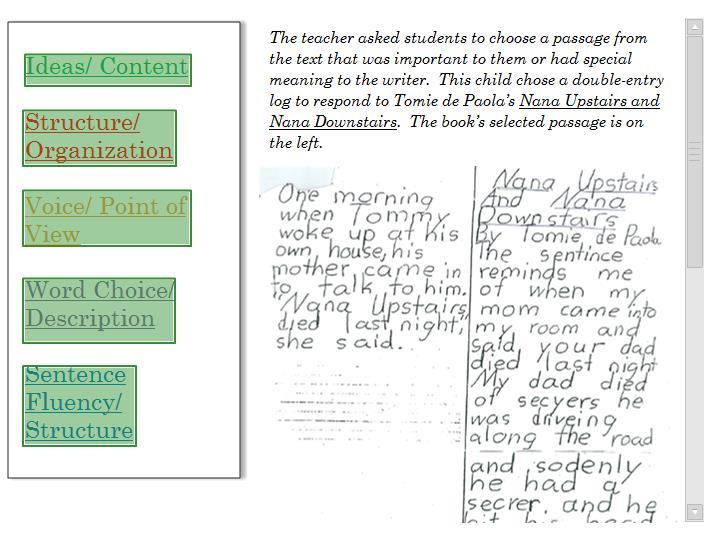 Ideas/ Content
Structure/
Organization
Voice/ Point of
View
Word Choice/
Description
Sentence
Fluency/
Structure
The teacher asked students to choose a passage from
the text that was important to them or had special
meaning to the writer. This child chose a double-entry
log to respond to Tomie de Paola's Nana Upstairs and
Nana Downstairs. The book's selected passage is on
the left.
One morning
when Tommy
woke up at his
own house, his
mother, came in
to talk to him.
"Nana Upstairs,
died last night,"
she said.
Nana Upstairs
And Nana
Downstairs
By Tomie de Paola
The sentince
reminds me
of when my
mom came into
my room and
said your dad
died last night
My dad died
of secyers he
was driveing
along the road
and sodenly
he had a
secrer, and he